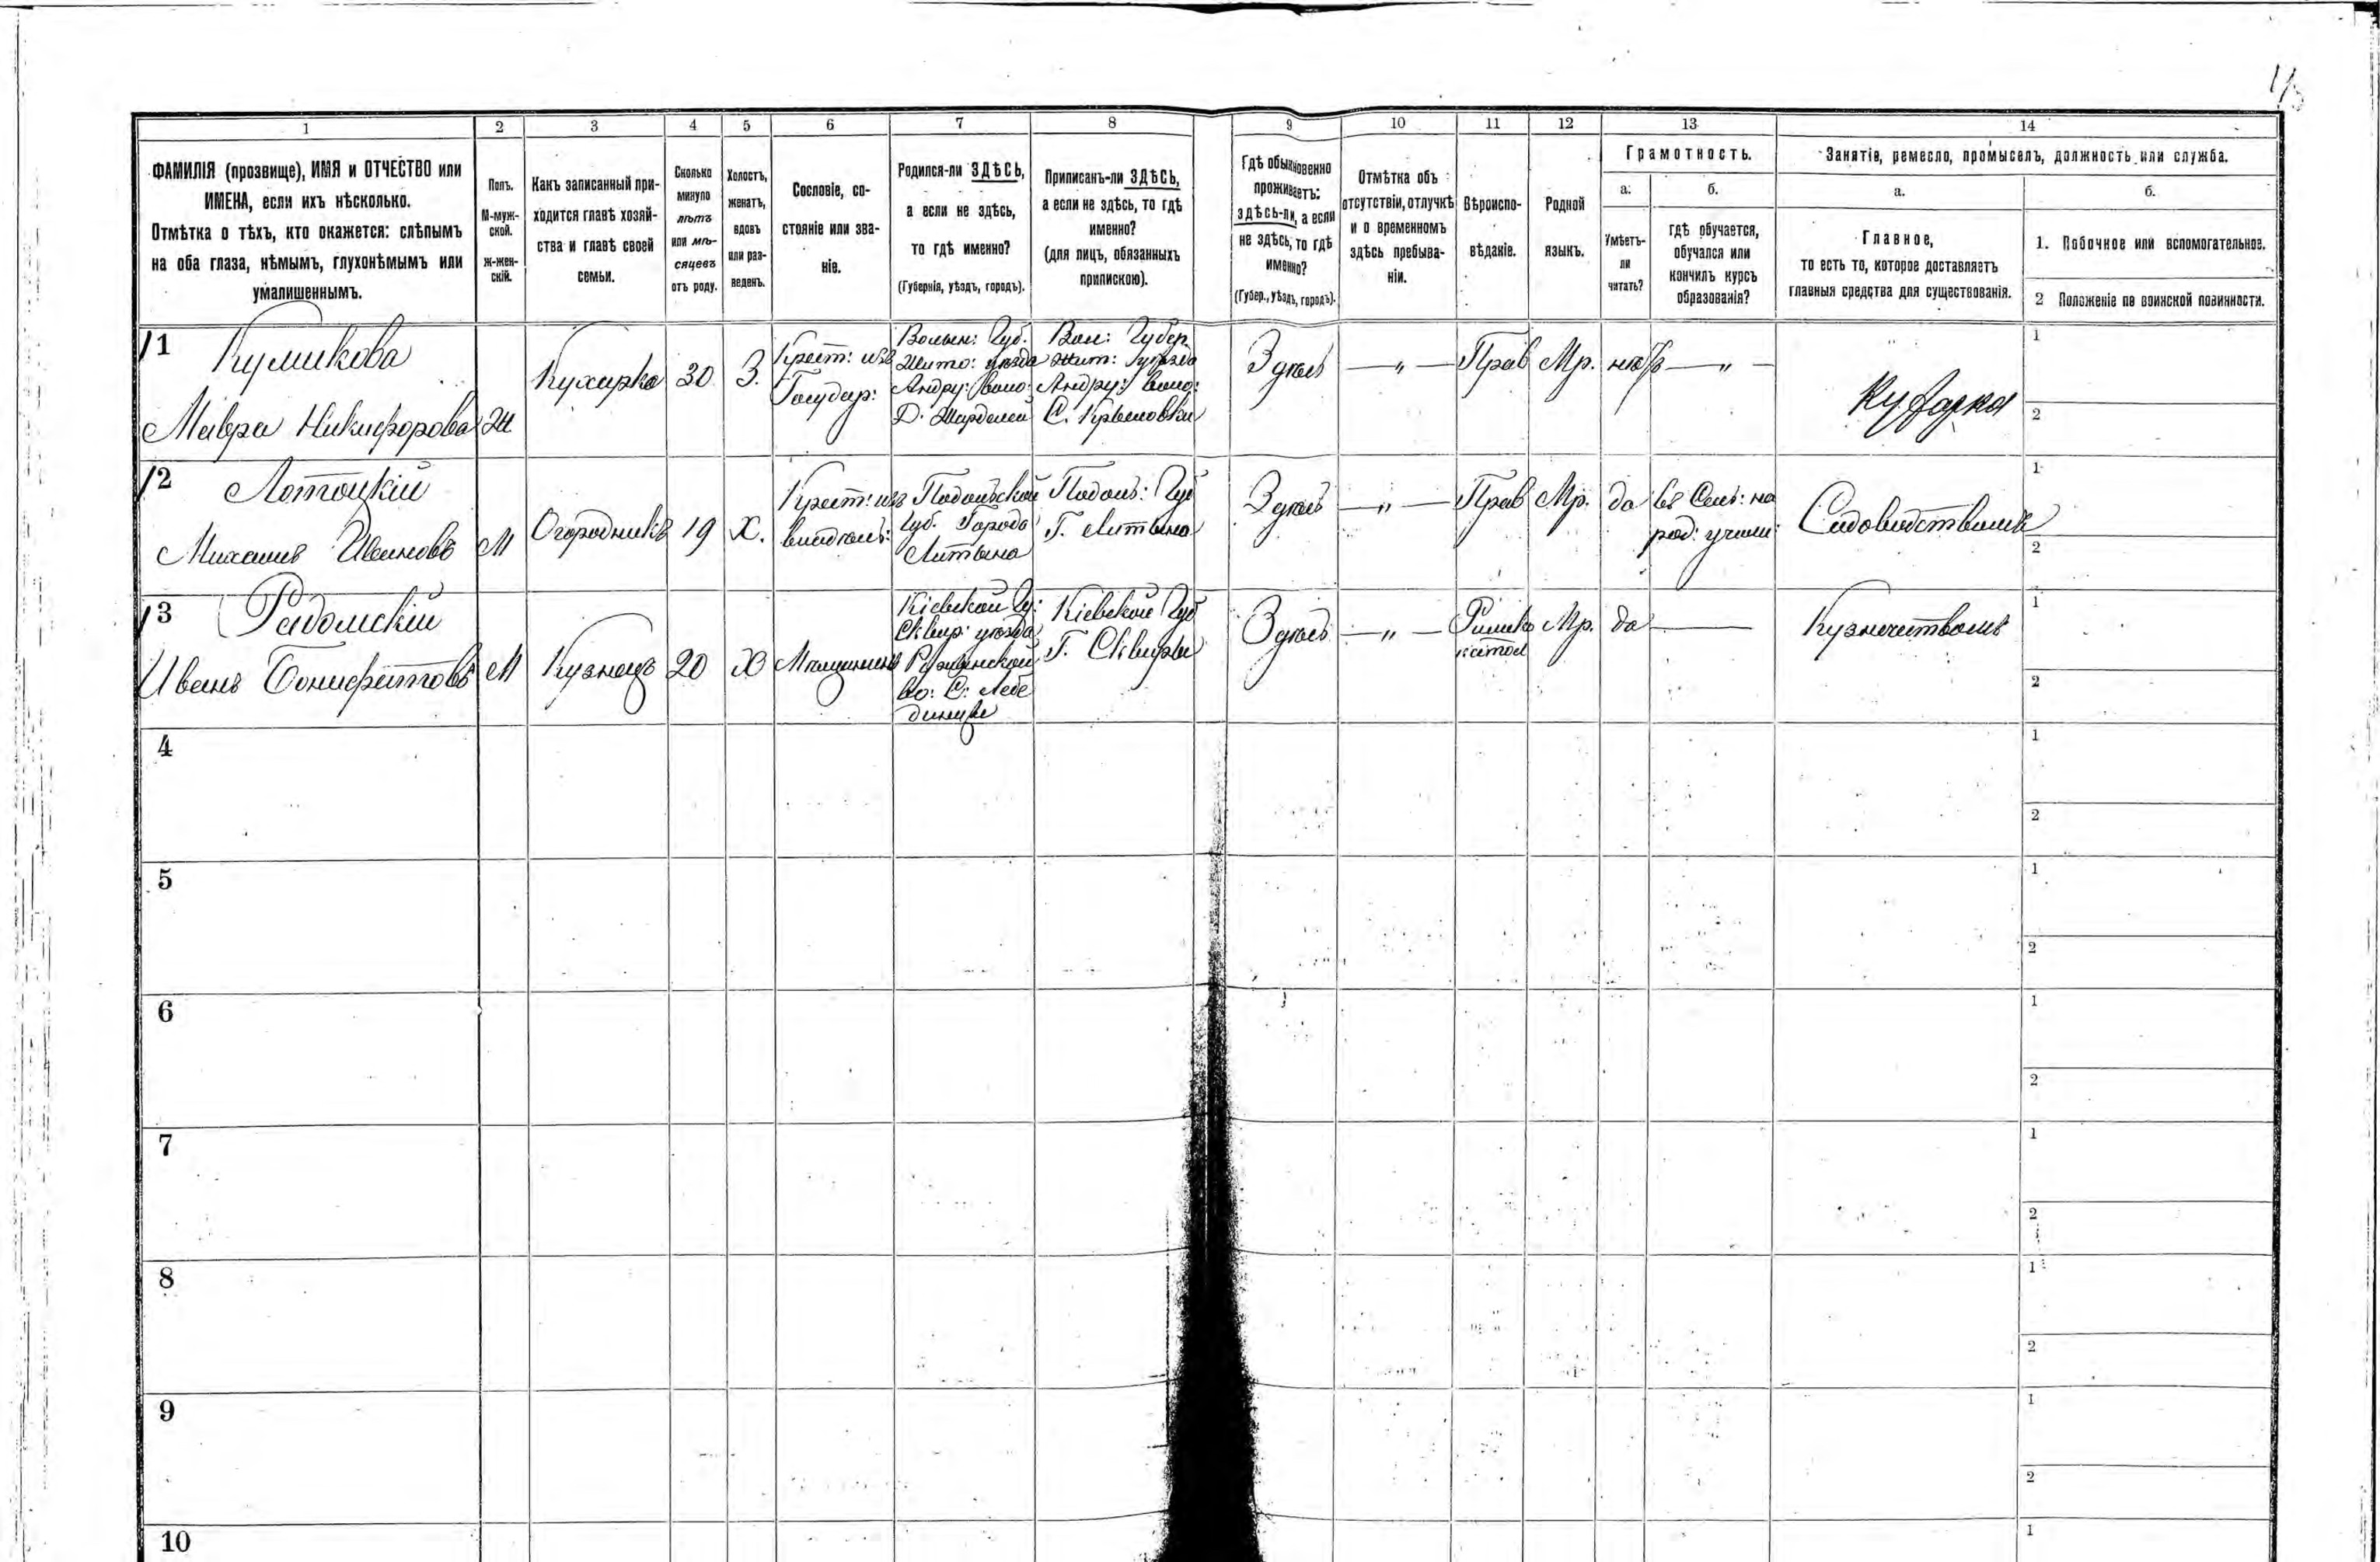 1 2 3 4 5 6 7 8 9 10 11 12 13 14
ФАМИЛІЯ (прозвище), ИМЯ и ОТЧЕСТВО или
ИМЕНА, если ихъ нѣсколько.
Отмѣтка о тѣхъ, кто окажется: слѣпымъ
на оба глаза, нѣмымъ, глухонѣмымъ или
умалишеннымъ.
Полъ.
М-муж-
ской.
ж-жен-
скій.
Какъ записанный при-
ходится главѣ хозяй-
ства и главѣ своей
семьи.
Сколько
минуло
лѣтъ
или мѣ-
сяцевъ
отъ роду.
Холостъ,
женатъ,
вдовъ
или раз-
веденъ.
Сословіе, со-
стояніе или зва-
ніе.
Родился-ли ЗДѢСЬ,
а если не здѣсь,
то гдѣ именно?
(Губернія, уѣздъ, городъ).
Приписанъ-ли ЗДѢСЬ,
а если не здѣсь, то гдѣ
именно?
(для лицъ, обязанныхъ
припискою).
Гдѣ обыкновенно
проживаетъ:
ЗДѢСЬ-ли, а если
не здѣсь, то гдѣ
именно?
(Губер., уѣздъ, городъ).
Отмѣтка объ
отсутствіи, отлучкѣ
и о временномъ
здѣсь пребыва-
ніи.
Вѣроиспо-
вѣданіе.
Родной
языкъ.
Грамотность.
а.
Умѣетъ-
ли
читать?
б.
гдѣ обучается,
обучался или
кончилъ курсъ
образованія?
Занятіе, ремесло, промыселъ, должность или служба.
а.
Главное,
то есть то, которое доставляетъ
главныя средства для существованія.
б.
1. Побочное или вспомогательное.
2 Положеніе по воинской повинности.
11
Куликова
Мавра Никифорова
Ж
Кухарка
30
З.
Крест: изъ
Государ:
Волын: Губ.
Жито: уѣзда
Андру: воло:
Д.
Вол: Губер
Жит: уѣзда
Андру: воло:
С. Крыловки
Здѣсь
— „ —
Прав
Мр.
нѣтъ
— „ —
Кухарка
1
2
12
Лотоцкій
Михаилъ Ивановъ
М
Огородникъ
19
Х.
Крест: изъ
владѣль:
Подольской
Губ. Города
Литына
Подоль: Губ
Г. Литына
Здѣсь
— „ —
Прав
Мр.
да
въ Сель: на
род: учили:
Садоводствомъ
1
2
13
Радомскій
Иванъ Бонифатовъ
М
Кузнецъ
20
Х
Мѣщанинъ
Кіевской Гу:
Сквир: уѣзда
Ружинской
Во: С: Лебе
динцы
Кіевской Губ
Г. Сквиры
Здѣсь
— „ —
Римско
катол
Мр.
да
—
Кузнечествомъ
1
2
4
1
2
5
1
2
6
1
2
7
1
2
8
1
2
9
1
2
10
1